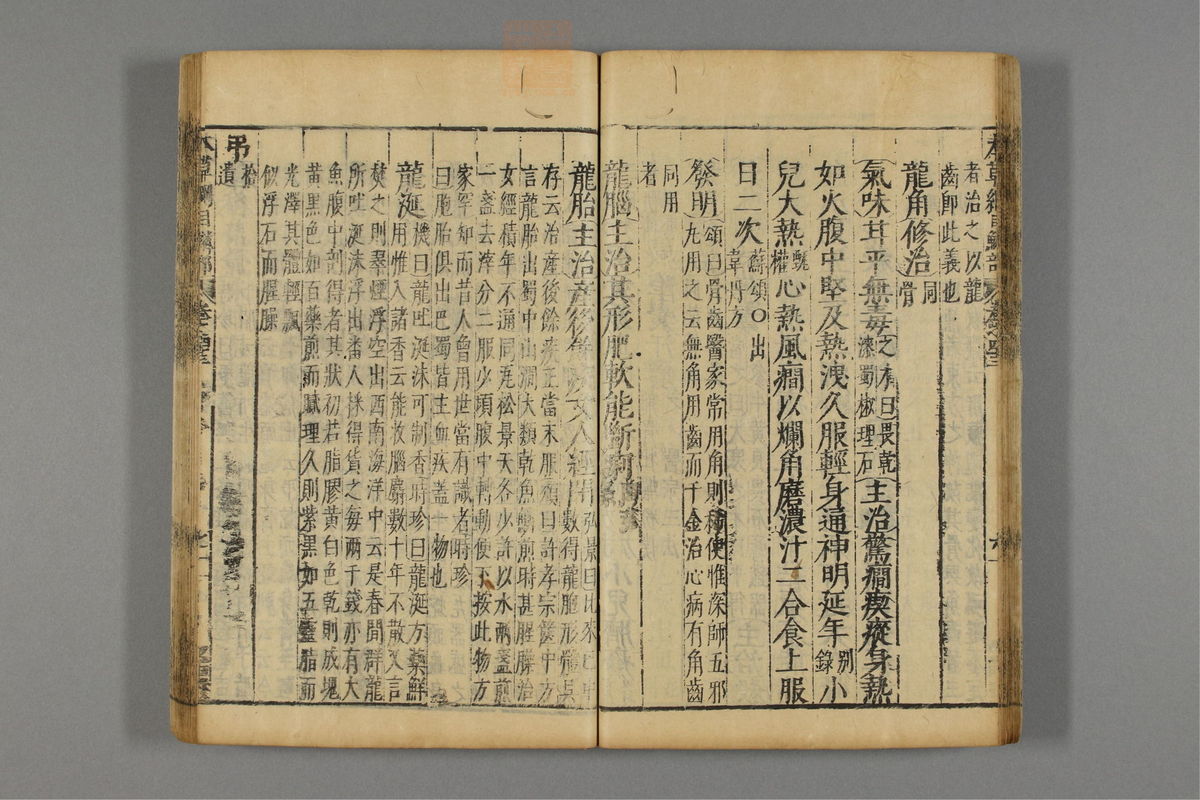 者治之以龍
齒即此義也
龍角修治同骨
氣味甘平無毒之才曰畏乾漆蜀椒理石主治驚癇瘈瘲身熱
如火腹中堅及熱洩久服輕身通神明延年別錄小
兒大熱甄權心熱風癇以爛角磨濃汁二合食上服
日二次蘇頌○出韋丹方
發明頌曰骨齒醫家常用角則稀使惟深師五邪
丸用之云無角用齒而千金治心病有角齒
同用
者
龍腦主治其形肥軟能斷痢
龍胎主治產後餘疾女人經
弘景曰比來巴中數得龍胞形體具
存云治產後餘疾正當末服頌曰許孝宗篋中方
言龍胎出蜀中山澗大類乾魚鱗煎時甚腥臊治
女經積年不通同瓦松景天各少許以水兩盞煎
一盞去滓分二服少頃腹中轉動便下按此物方
家罕知而昔人曾用世當有識者時珍
曰胞胎俱出巴蜀皆主血疾蓋一物也
龍涎機曰龍吐涎沫可制香時珍曰龍涎方藥鮮
用惟入諸香云能收腦麝數十年不散又言
焚之則翠煙浮空出西南海洋中云是春間群龍
所吐涎沫浮出番人採得貨之每兩千錢亦有大
魚腹中剖得者其狀初若脂膠黃白色乾則成塊
黃黑色如百藥煎而膩理久則紫黑如五靈脂而
光澤其體輕飄
似浮石而腥臊
弔拾遺
本草綱目鱗部